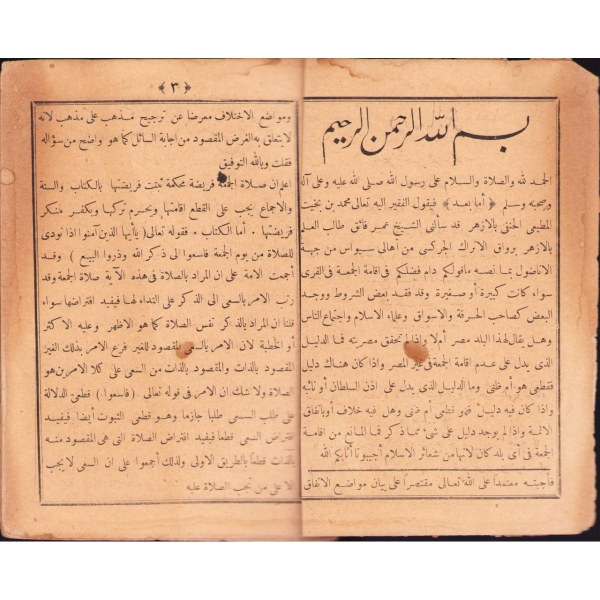 بسم الله الرحمن الرحيم
الحمد لله والصلاة والسلام على رسول الله صلى الله عليه وعلى آله
وصحبه وسلم ﴿ أما بعد ﴾ فيقول الفقير اليه تعالى محمد بن بخيت
المطيعى الحنفى بالازهر قد سألنى الشيخ عمر فائق طالب العلم
بالازهر برواق الاتراك الجركسى من أهالى سيواس من جهة
الاناضول بما نصه ماقولكم دام فضلكم فى اقامة الجمعة فى القرى
سواء كانت كبيرة أو صغيرة وقد فقد بعض الشروط ووجد
البعض كصاحب الحرفة والاسواق وعلماء الاسلام واجتماع الناس
وهل يقال لهذا البلد مصر أم لا واذا لم تتحقق مصريته فما الدليل
الذى يدل على عدم اقامة الجمعة فى غير المصر واذا كان هناك دليل
فقطعى هو أم ظنى وما الدليل الذى يدل على اذن السلطان أو نائبه
واذا كان فيه دليل فهو قطعى أم ظنى وهل فيه خلاف أو باتفاق
الائمة واذا لم يوجد دليل على شئ مما ذكر فما المانع من اقامة
الجمعة فى أى بلد كان لانها من شعائر الاسلام أجيبونا أثابكم الله
فأجبته معتمدا على الله تعالى مقتصرا على بيان مواضع الاتفاق
﴿ ٣ ﴾
ومواضع الاختلاف معرضا عن ترجيح مذهب على مذهب لانه
لا يتعلق به الغرض المقصود من اجابة السائل كما هو واضح من سؤاله
فقلت وبالله التوفيق
اعلم ان صلاة الجمعة فريضة محكمة ثبتت فريضتها بالكتاب والسنة
والاجماع يجب على القطع اقامتها ويحرم تركها ويكفر منكر
فريضتها . أما الكتاب . فقوله تعالى (ياأيها الذين آمنوا اذا نودى
للصلاة من يوم الجمعة فاسعوا الى ذكر الله وذروا البيع ) وقد
أجمعت الامة على ان المراد بالصلاة فى هذه الآية صلاة الجمعة وقد
رتب الامر بالسعى الى الذكر على النداء لها فيفيد افتراضها سواء
قلنا ان المراد بالذكر نفس الصلاة كما هو الاظهر وعليه الاكثر
أو الخطبة لان الامر بالسعى المقصود للغير فرع الامر بذلك الغير
المقصود بالذات والمقصود بالذات من السعى على كلا الامرين هو
الصلاة ولا شك ان الامر فى قوله تعالى (فاسعوا) قطعى الدلالة
على طلب السعى طلبا جازما وهو قطعى الثبوت أيضا فيفيد
افتراض السعى قطعا فيفيد افتراض الصلاة التى هى المقصود منه
بالذات قطعا بالطريق الاولى ولذلك أجمعوا على ان السعى لا يجب
الا على من تجب الصلاة عليه